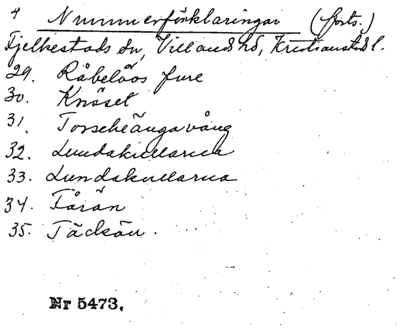 4 Nummerförklaringar (forts.)
Fjelkestads sn, Villands hd, Kristianstads l.
29. Råbelövs fure
30. Knösel
31. Torscheängavång
32. Lundakullarna
33. Lundakullarna
34. Fårön
35. Täckön.
Nr 5473.